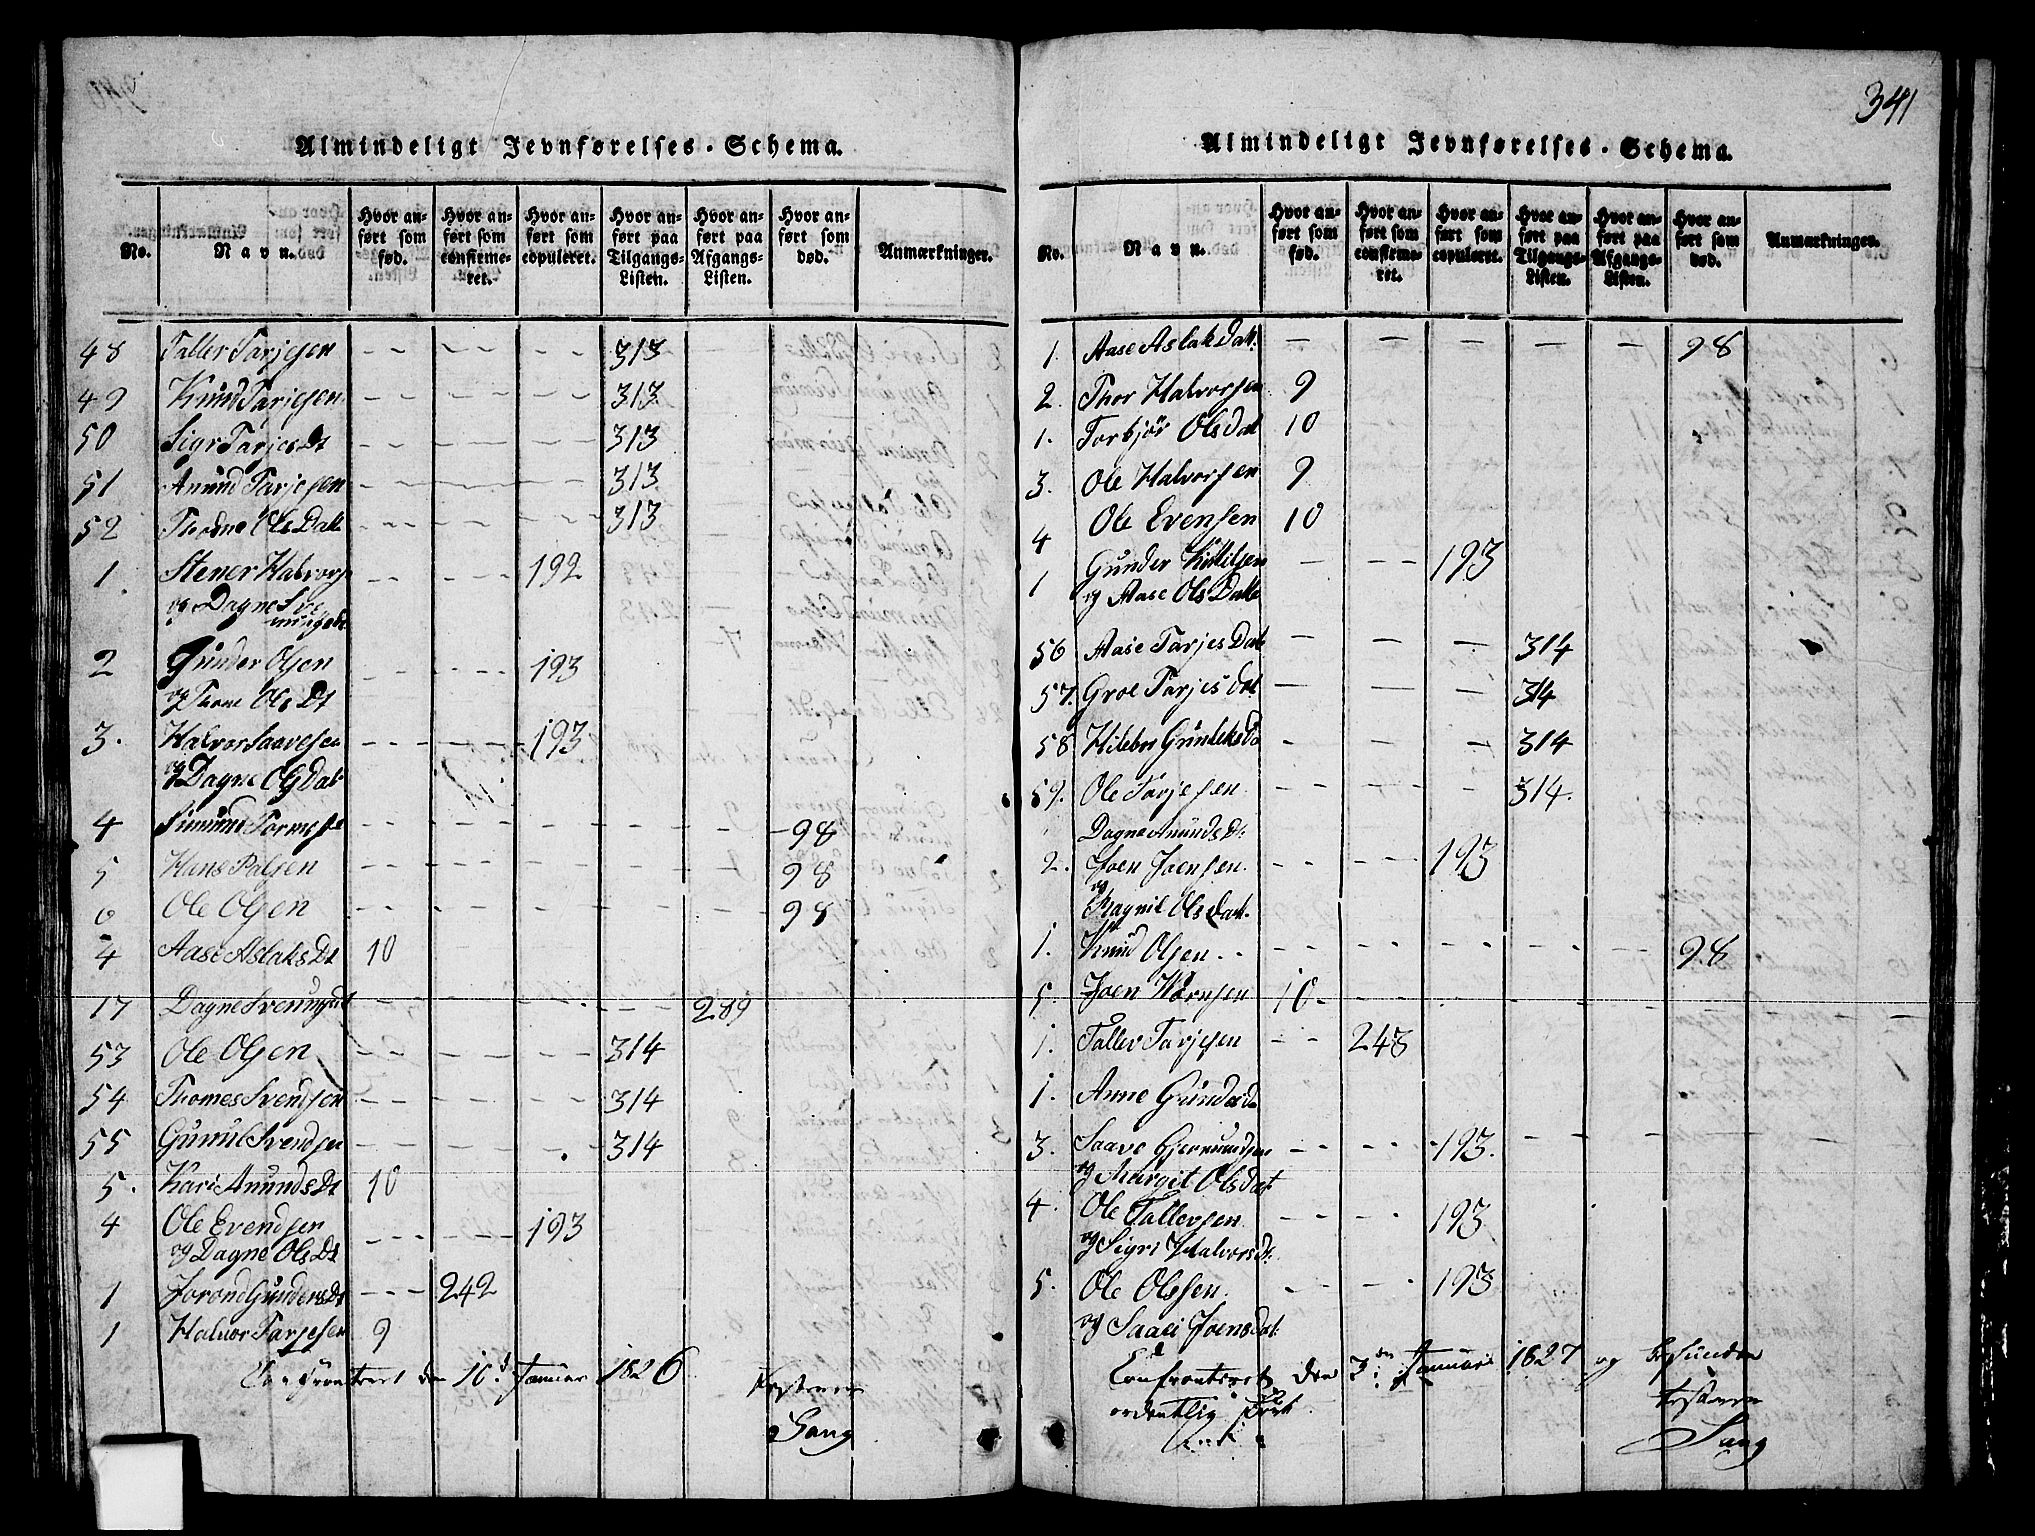 Almindeligt Jevnførelses-Schema.
No. Navn. Hvor anført som fød. Hvor anført som confirmeret. Hvor anført som copuleret. Hvor anført paa Tilgangs-Listen. Hvor anført paa Afgangs-Listen. Hvor anført som død. Anmærkninger.
48 Taller Tarjesen - - - - 313 -
49 Knud Tarjesen - - - - 313
50 Sigr Tarjes Dt - - - 313
51 Anund Tarjesen - - - - 313
52 Thorne Ols Datt - - - - 313
1 Stener Halvors - - - 192
og Dagne Sve
nungsdt
2 Gunder Olsen - - - 193
og Thone Ols Dt
3. Halvor Saavesen - - - 193
og Dagne Ols Dat
4 Simund Tormosse - - - - - 98
5 Hans Palsen - - - - - 98
6 Ole Olsen - - - - - 98
4 Aase Aslaks Dt 10
17 Dagne Svenungsdt - - - - 289
53 Ole Olsen - - - 314
54 Thomes Svendsen - - - 314
55 Gunul Svendsen - - - 314
5. Kari Anunds Dt 10
4 Ole Evendsen
og Dagne Ols Dt - - - 193
1 Jorond Gunders Dt - - - 242
1 Halvor Tarjesen 9
Confronteret den 10d Januar 1826
Sang
341
Almindeligt Jevnførelses-Schema.
No. Navn. Hvor anført som fød. Hvor anført som confirmeret. Hvor anført som copuleret. Hvor anført paa Tilgangs-Listen. Hvor anført paa Afgangs-Listen. Hvor anført som død. Anmærkninger.
1. Aase Aslak Datt. - - - - - 98
2. Thor Halvorsen 9
1. Torbjør Olsdat 10
3. Ole Halvorsen 9
4 Ole Evensen 10
1 Gunder Kittilsen - - - 193
og Aase Ols Datt
56 Aase Tarjes Dat - - - 314
57. Groe Tarjes Dat - - - 314
58 Hilebor Gunleks Da - - 314
59. Ole Tarjesen - - - 314.
Dagne Anunds Dt.
2. Joen Joensen - - - 193
og
Ragnil Ols Datt.
1. Knud Olsen - - - - - 98
5. Joen Wernsen 10 - - - -
1. Taller Tarjesen - - 243
1. Anne Gundersda
3. Saave Gjermundsen - - - 193. - - - -
og Margit Olsdat
4. Ole Tallevsen - - - 193
og Sigri Halvorsdt.
5. Ole Olssen - - - 193
og Saaei Joensdat.
Confronteret den 3die Januar 1827 og befunden
ordentlig ført
Sang